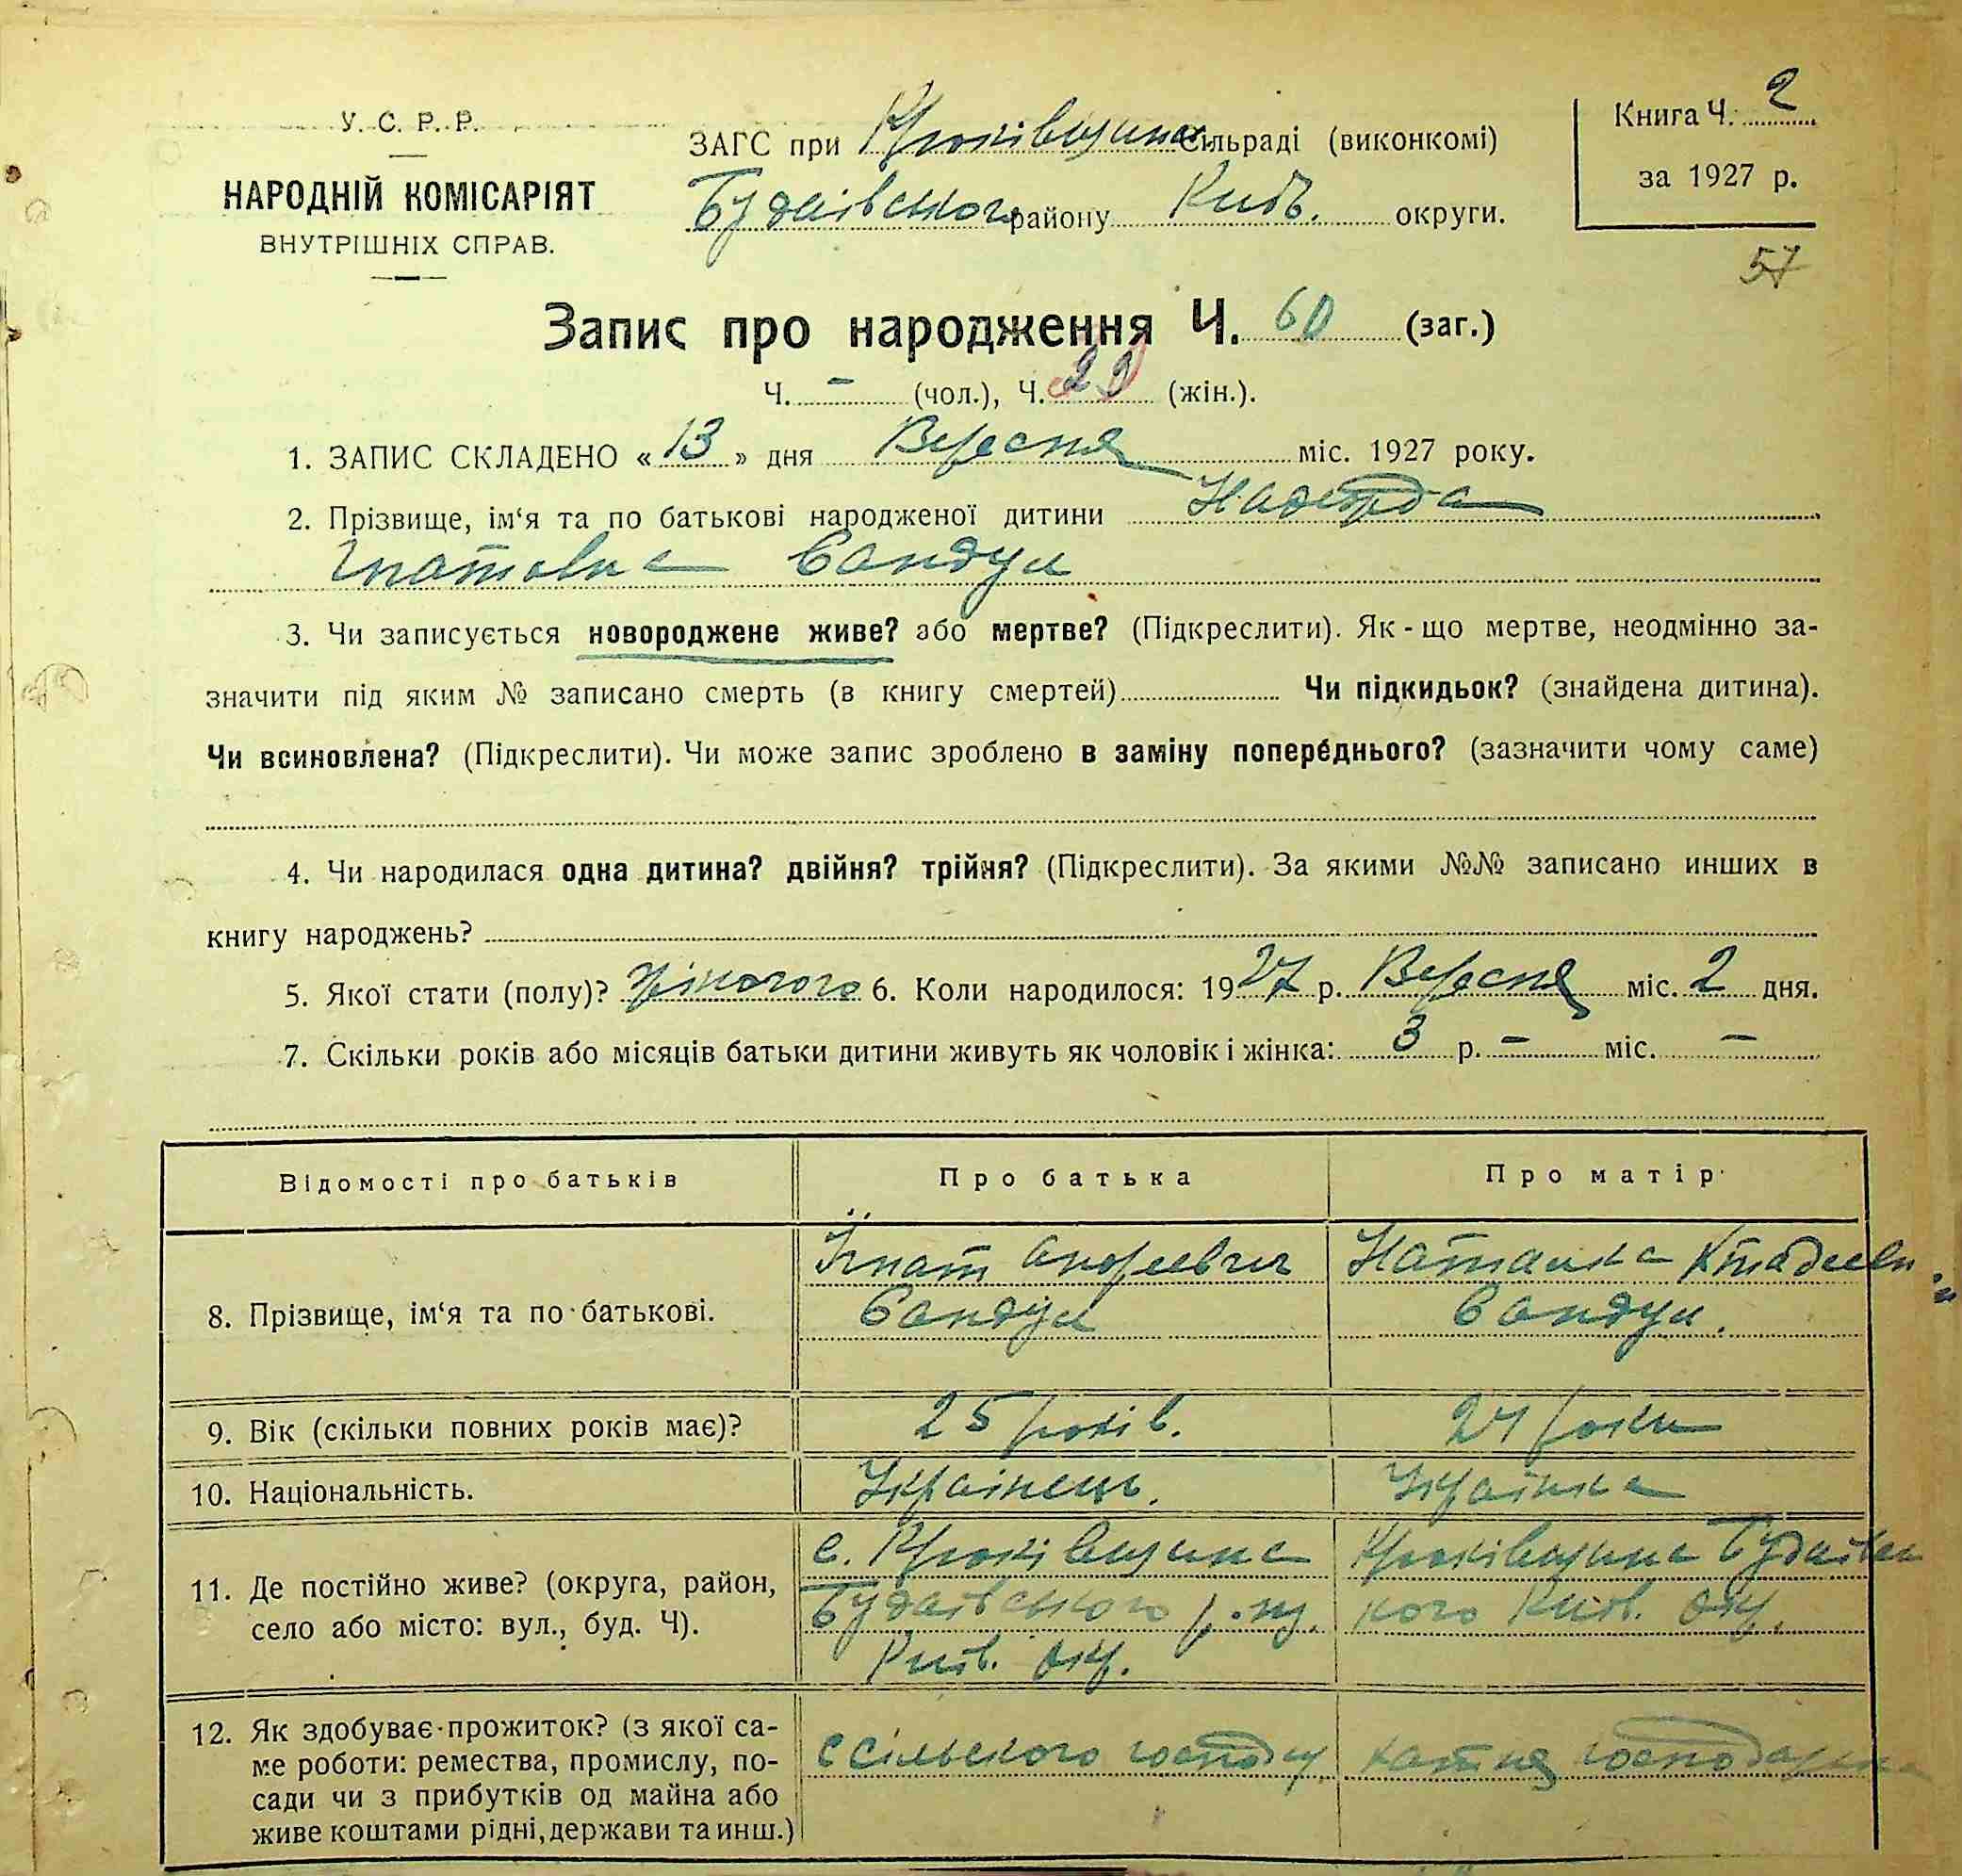 У. С. Р. Р.
НАРОДНІЙ КОМІСАРІЯТ
ВНУТРІШНІХ СПРАВ.
ЗАГС при Крюківщина Сільраді (виконкомі)
Будаівського району Київ. округи.
Книга Ч. 2
за 1927 р.
57
Запис про народження Ч. 60 (заг.)
Ч. – (чол.), Ч. 29 (жін.).
1. ЗАПИС СКЛАДЕНО « 13 » дня Вересня міс. 1927 року.
2. Прізвище, ім‘я та по батькові народженої дитини Надежда
Гнатовна Сандул
3. Чи записується новороджене живе? або мертве? (Підкреслити). Як-що мертве, неодмінно за-
значити під яким № записано смерть (в книгу смертей) Чи підкидьок? (знайдена дитина).
Чи всиновлена? (Підкреслити). Чи може запис зроблено в заміну попереднього? (зазначити чому саме)
4. Чи народилася одна дитина? двійня? трійня? (Підкреслити). За якими №№ записано инших в
книгу народжень?
5. Якої стати (полу)? жіночого 6. Коли народилося: 1927 р. Вересня міс. 2 дня.
7. Скільки років або місяців батьки дитини живуть як чоловік і жінка: 3 р. – міс. –
Відомості про батьків Про батька Про матір
8. Прізвище, ім‘я та по батькові. Гнат Андреевич Сандул Наталка Сандул.
9. Вік (скільки повних років має)? 25 років. 24 роки
10. Національність. Українець. Українка
11. Де постійно живе? (округа, район,
село або місто: вул., буд. Ч).
с. Крюківщина
Будаівського р-ну
Київ. окр.
Крюківщина Будаівсь
кого Київ. окр.
12. Як здобуває прожиток? (з якої са-
ме роботи: ремества, промислу, по-
сади чи з прибутків од майна або
живе коштами рідні, держави та инш.)
с сільського господ
хатня господарка